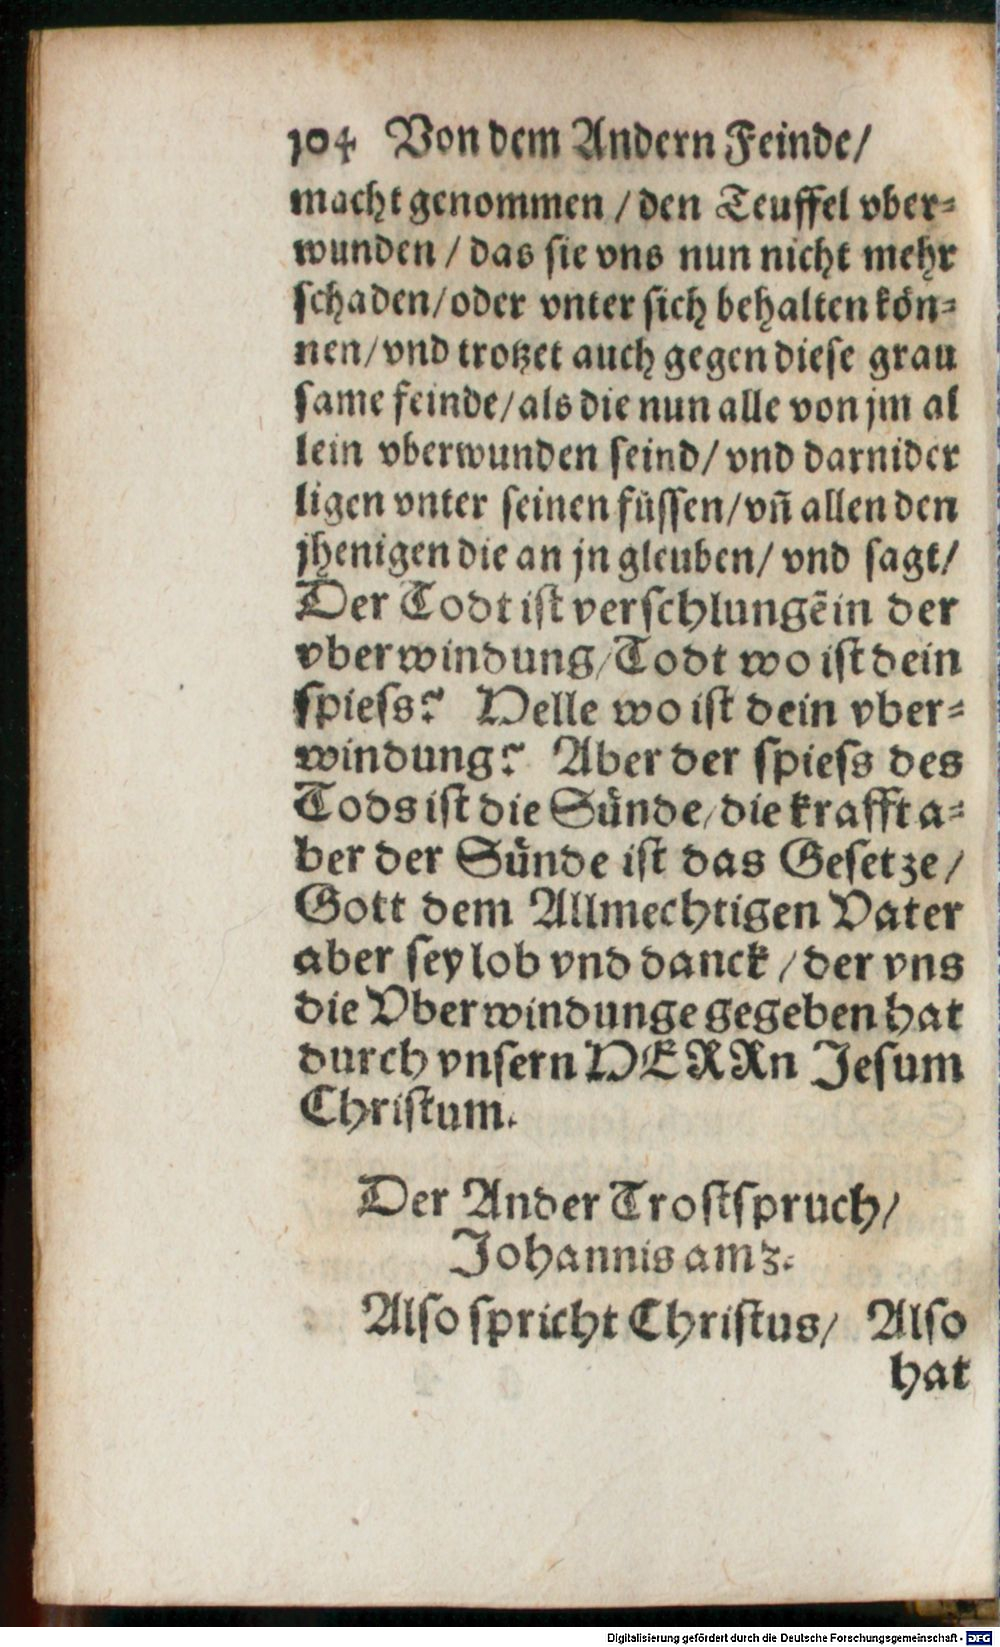 104 Von dem Andern Feinde/
macht genommen / den Teuffel vber⸗
wunden / das sie vns nun nicht mehr
schaden/oder vnter sich behalten kön⸗
nen/vnd trotzet auch gegen diese grau
same feinde/als die nun alle von jm al
lein vberwunden seind/ vnd darnider
ligen vnter seinen füssen/vñ allen den
jhenigen die an jn gleuben/ vnd sagt/
Der Todt ist verschlungẽ in der
vberwindung/Todt wo ist dein
spiess? Helle wo ist dein vber⸗
windung? Aber der spiess des
Tods ist die Sünde/die krafft a⸗
ber der Sünde ist das Gesetze/
Gott dem Allmechtigen Vater
aber sey lob vnd danck / der vns
die Vberwindunge gegeben hat
durch vnsern HERRn Jesum
Christum.
Der Ander Trostspruch/
Johannis am 3.
Also spricht Christus/ Also
hat
Digitalisierung gefördert durch die Deutsche Forschungsgemeinschaft - DFG